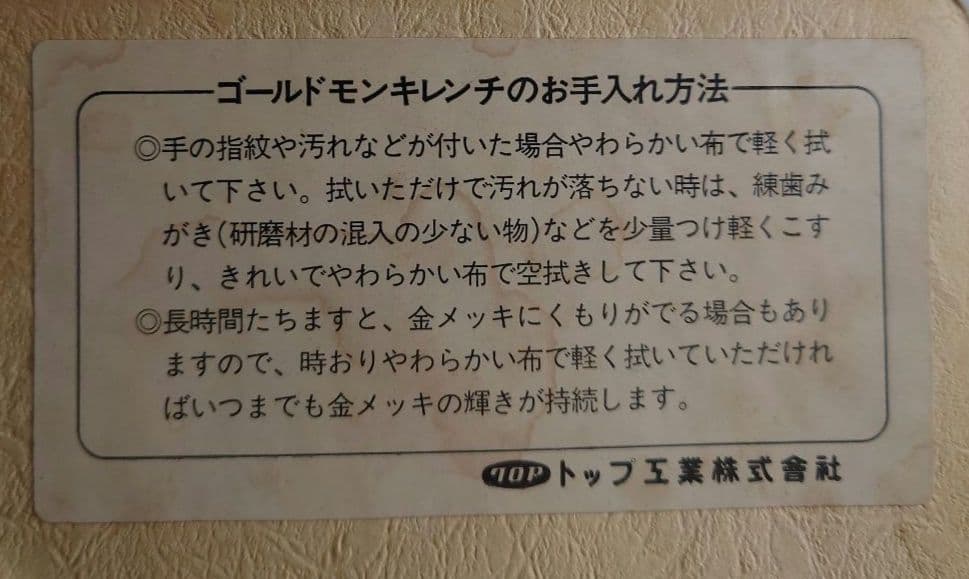 ゴールドモンキレンチのお手入れ方法
◎手の指紋や汚れなどが付いた場合やわらかい布で軽く拭
いて下さい。拭いただけで汚れが落ちない時は、練歯み
がき(研磨材の混入の少ない物)などを少量つけ軽くこす
り、きれいでやわらかい布で空拭きして下さい。
◎長時間たちますと、金メッキにくもりがでる場合もあり
ますので、時おりやわらかい布で軽く拭いていただけれ
ばいつまでも金メッキの輝きが持続します。
TOP トップ工業株式會社